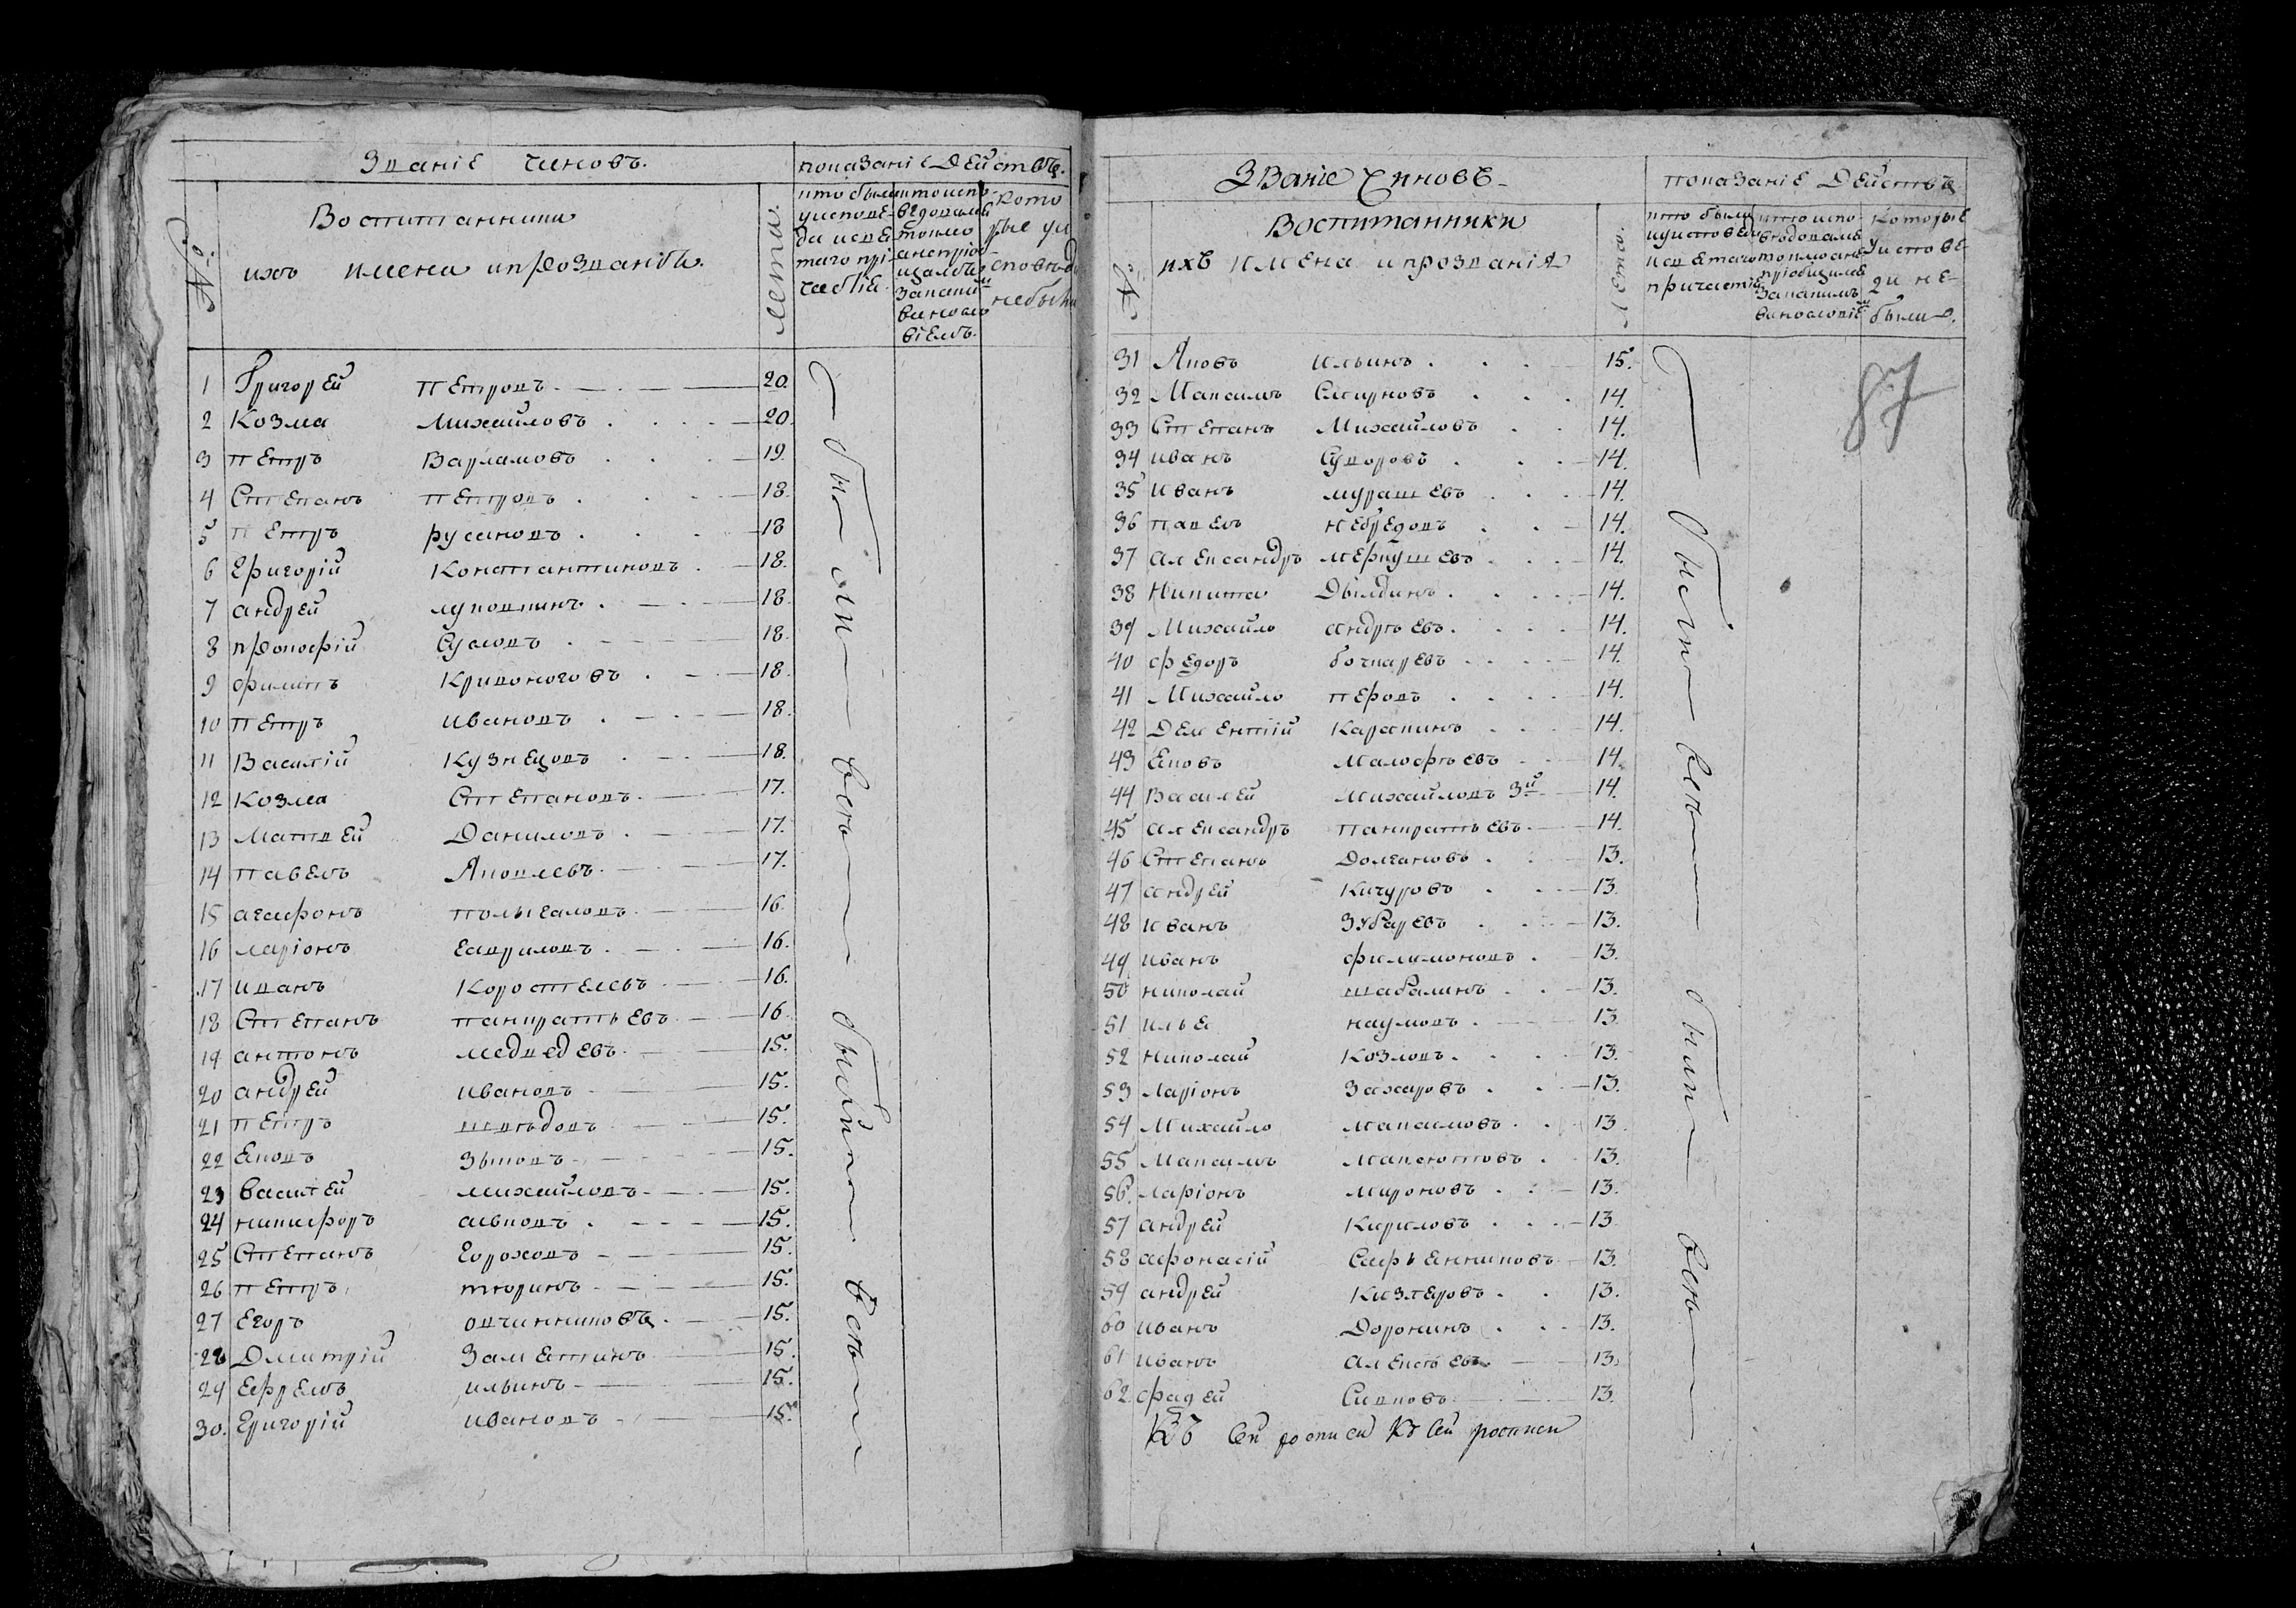 Званіе чиновъ.
показаніе Действъ.
№:
Воспитанники
ихъ имена и прозваніѣ.
лета.
кто были
у исповѣ-
да и све-
таго при-
частіѣ.
кто испо-
ведовался
толко
а не пріоб-
щался
за каким
виносло
віемъ.
кото
рые у и
споведи
не были
1 Григорей Петровъ 20.
2 Козма Михайловъ 20.
3 Петръ Варламовъ 19.
4 Степанъ Петровъ 18.
5 Петръ Русаковъ 18
6 Григорій Константиновъ 18.
7 андрей лукошкинъ 18
8 прокофій Сусловъ 18.
9 филипъ Кривоноговъ 18.
10 Петръ ивановъ 18.
11 Василій Кузнецовъ 18.
12 Козма Степановъ 17.
13 Матвей Даниловъ 17.
14 Павелъ Яковлевъ 17.
15 агафонъ полыгаловъ 16.
16 ларіонъ гавриловъ 16.
17 иванъ Коростелевъ 16.
18 Степанъ панкратьевъ 16
19 антонъ медведевъ 15.
20 андрей ивановъ 15.
21 Петръ шведовъ 15.
22 Яковъ Зыковъ 15.
23 василей михайловъ 15.
24 никифоръ 15.
25 Степанъ гороховъ 15.
26 Петръ тюринъ 15.
27 Егоръ овчинниковъ 15.
28 Дмитрій Заметинъ 15.
29 Ефремъ ильинъ 15.
30. Григорій ивановъ 15.
были всѣ были всѣ
Званіе Чиновъ
показаніе Действъ
№:
Воспитанники
ихъ имена и прозваніѣ
лета.
кто были
у исповѣди
и светаго
причастіѣ
кто испо-
ведовалсѣ
толко а не
пріобщилсѣ
за какимъ
виносломіе
которые
у испове-
ди не-
были.
31 Яковъ ильинъ 15.
87
32 Максимъ Смирновъ 14.
33 Степанъ Михайловъ 14.
34 иванъ Суворовъ 14.
35 иванъ мурашевъ 14.
36 павелъ нефедовъ 14.
37 александръ меркушевъ 14.
38 Никита Дылдинъ 14.
39 Михайло андрѣевъ 14.
40 федоръ бочкаревъ 14.
41 Михайло перовъ 14.
42 Дементій Каракинъ 14.
43 Яковъ Малофѣевъ 14.
44 Василей михайловъ 3й 14.
45 александръ панкратьевъ 14.
46 Степанъ Долгановъ 13.
47 андрей Кичуровъ 13.
48 иванъ Зубаревъ 13.
49 иванъ филимоновъ 13.
50 николай шабалинъ 13.
51 илья наумовъ 13.
52 николай Козловъ 13.
53 ларіонъ Захаровъ 13.
54 Михайло максимовъ 13
55 Максимъ максютовъ 13.
56. ларіонъ мироновъ 13.
57 андрей Кириловъ 13
58 афонасій Сафьянниковъ 13.
59 андрей Кизляровъ 13.
60 иванъ Доронинъ 13.
61 иванъ алексѣевъ 13.
62. фадей Сивковъ 13.
Къ Сей росписи Къ Сей росписи
были всѣ были всѣ